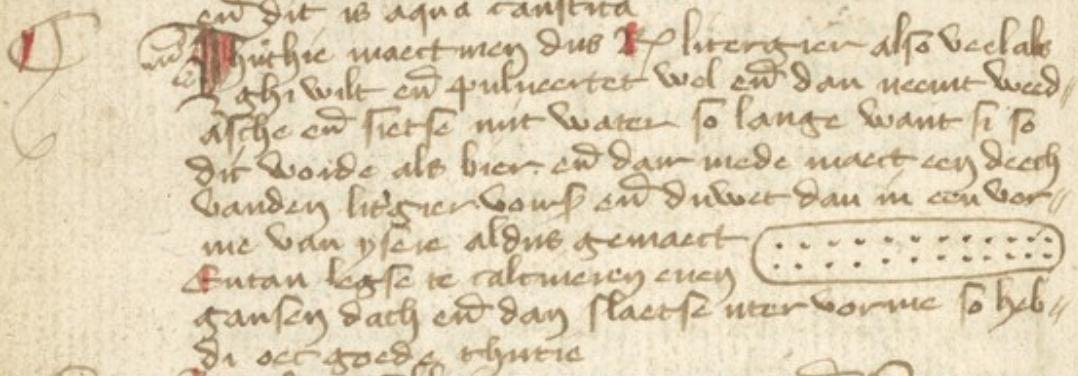 en̄ dit is aqua caustica
Thuthie maectmen dus ℞ litergier also veel als
ghi wilt en̄ pulueertet wel en̄ dan neemt weed//
assche en̄ sietse mit water so lange want si so
dic worde als bier. en̄ daer mede maect een deech
vanden lit'gier vors en̄ duwet dan in een vor//
me van ysere aldus gemaect
Entan legse te calcineren enen
gansen dach en̄ dan slaetse uter vorme so heb//
di oec goede thutie